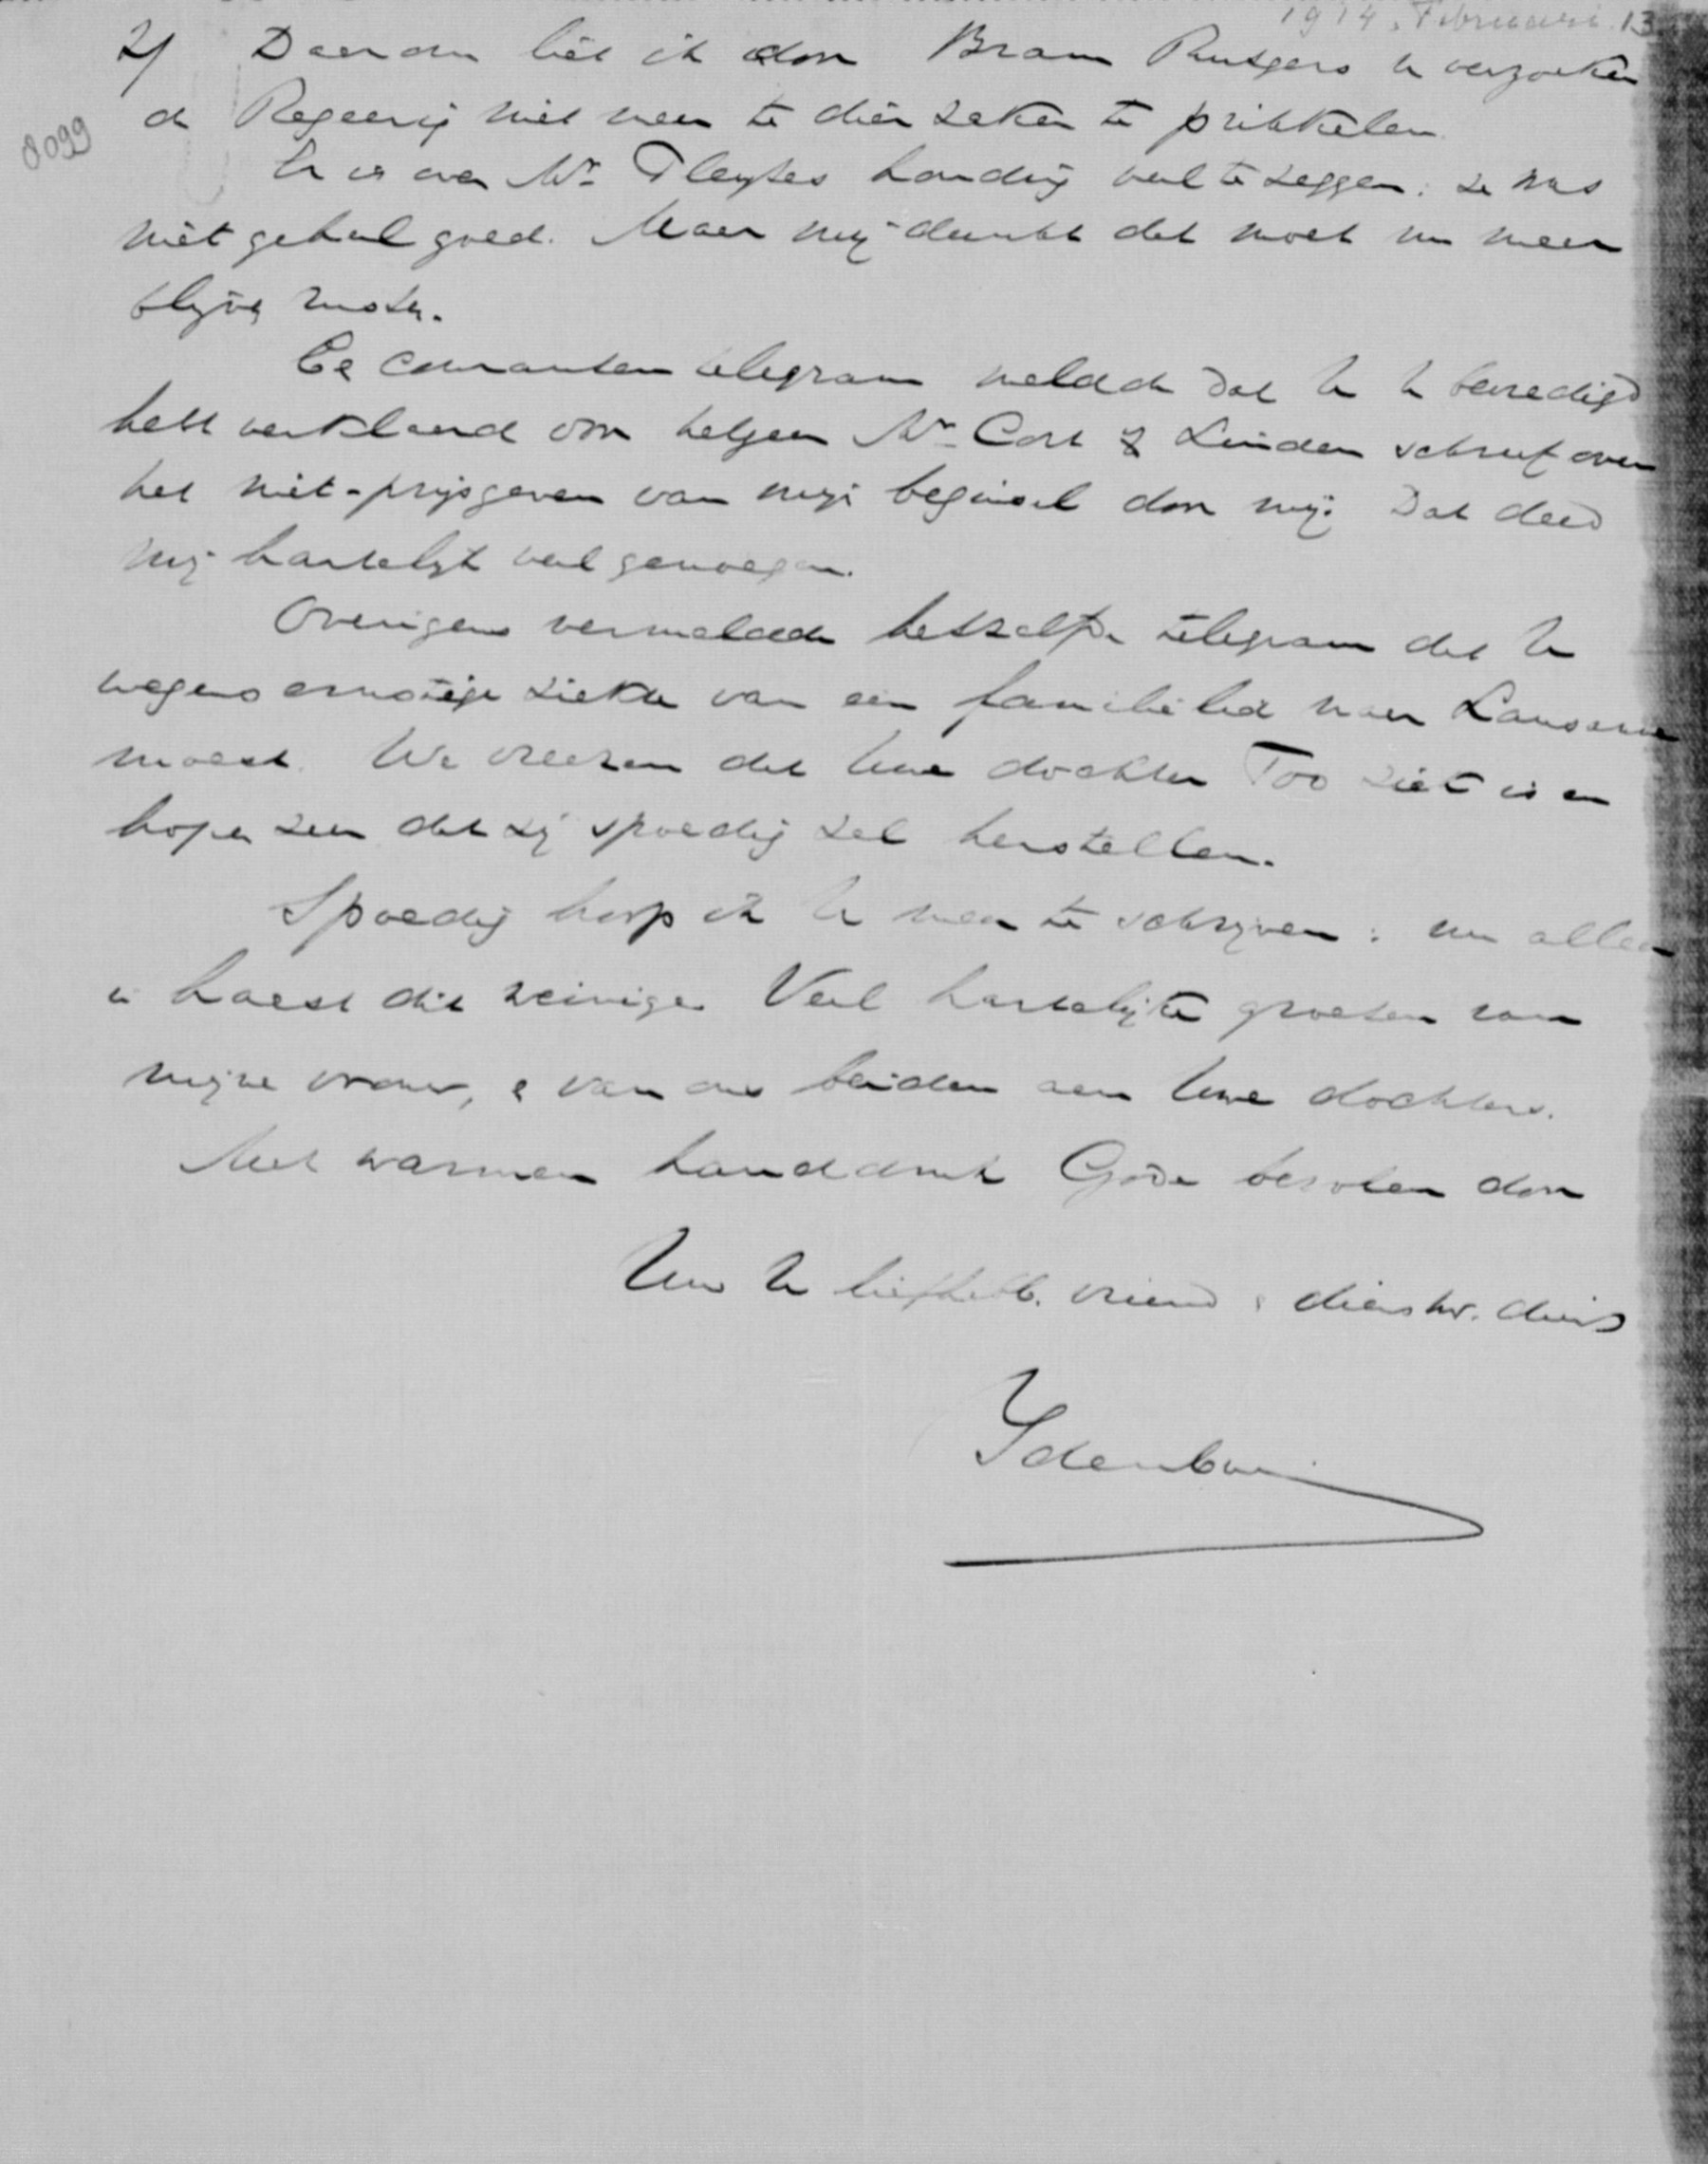 1914. Februari 13
8099
2/ Daarom liet ik door Bram Rutgers U verzoeken
de Regeering niet meer te dier zake te prikkelen.
Er is over Mr. Pleytes houding veel te zeggen: ze was
niet geheel goed. Maar mij dunkt dat moet nu maar
blijven rusten.
Een courantentelegram meldde dat U U bevredigd
hebt verklaard om hetgeen Mr. Cort v. d. Linden schreef over
het niet-prijsgeven van mijn beginsel door mij. Dat deed
mij hartelijk veel genoegen.
Overigens vermeldde hetzelfde telegram dat U
wegens ernstige ziekte van een familielid naar Lausanne
moest. We vreezen dat Uwe dochter Too ziek is en
hopen zeer dat zij spoedig zal herstellen.
Spoedig hoop ik U meer te schrijven: nu alleen
in haast dit weinige. Veel hartelijke groeten van
mijne vrouw, & van ons beiden aan Uwe dochters.
Met warmen handdruk Gode bevolen door
Uw U liefhebb. vriend & dienstw. dienr
Idenburg